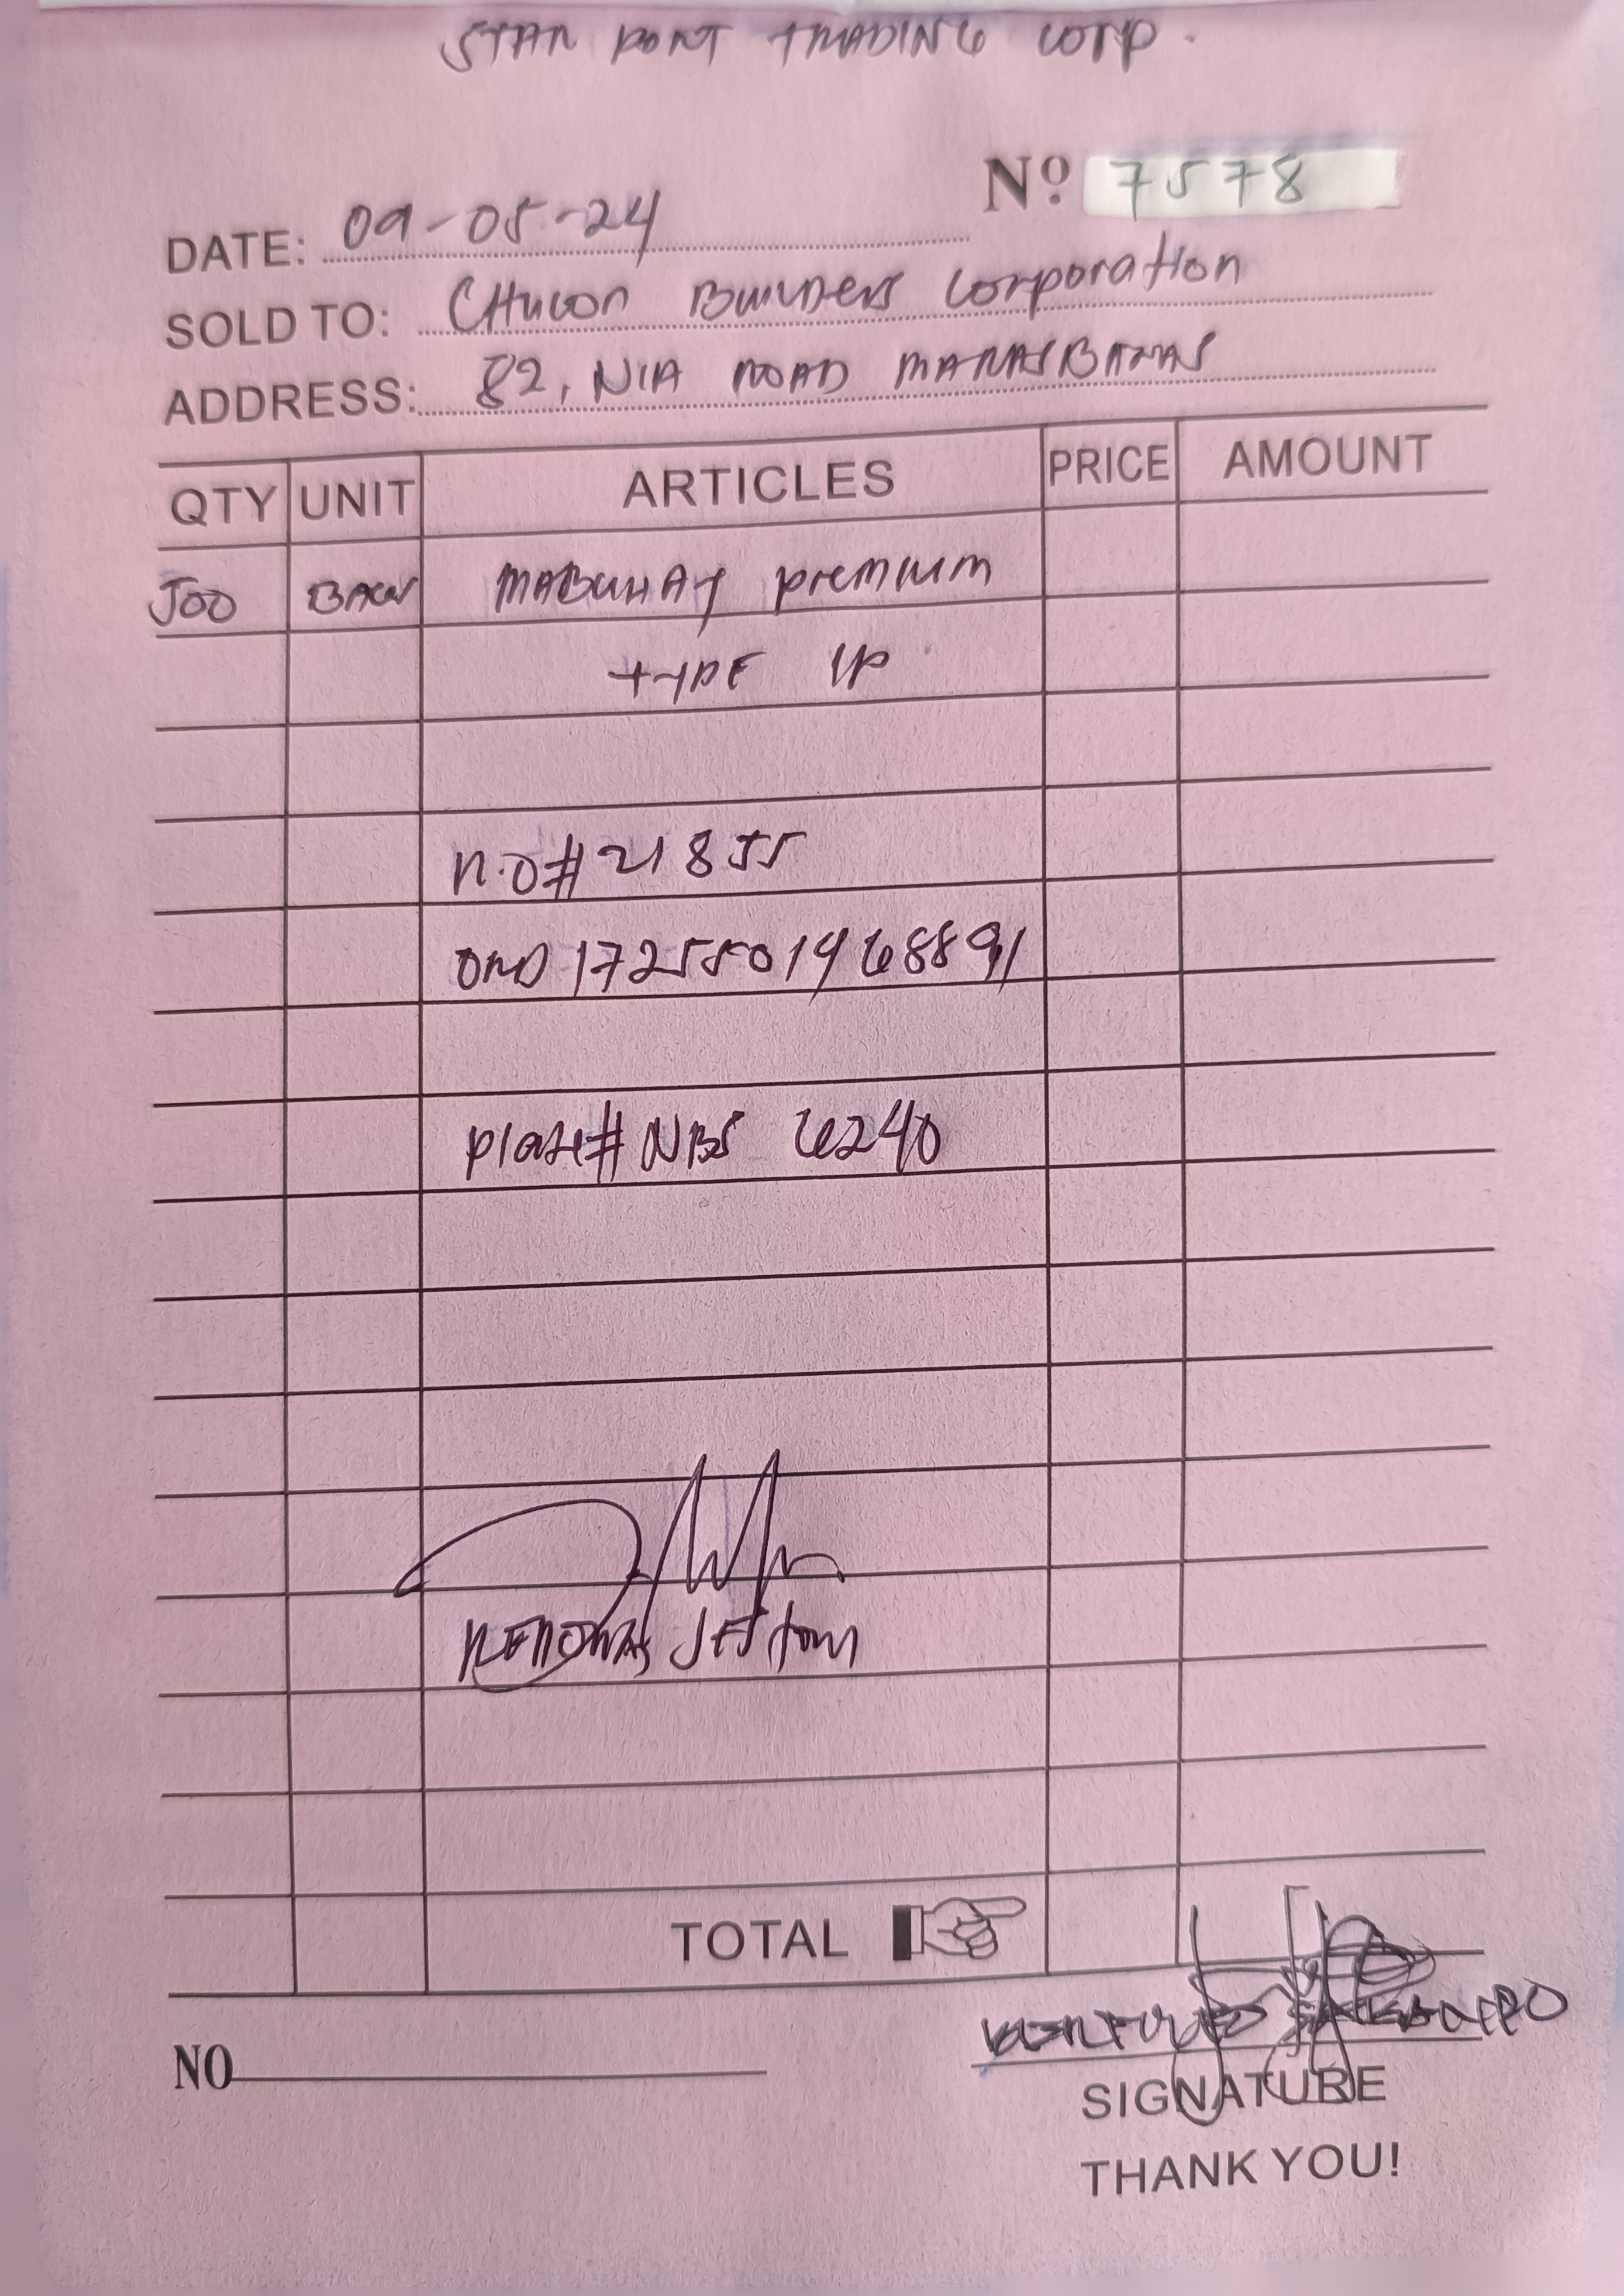 STAR PORT TRADING CORP.
Nº 7578
DATE: 09-05-24
SOLD TO: CHUCON BUILDERS Corporation
ADDRESS: 82, NIA ROAD MARASBARAS
QTY UNIT ARTICLES PRICE AMOUNT
500 BAGS MABUHAY premium
TYPE 1P
R.O# 21855
ORD 1725501968891
Plate# NBS 6240
TOTAL
NO
SIGNATURE
THANK YOU!